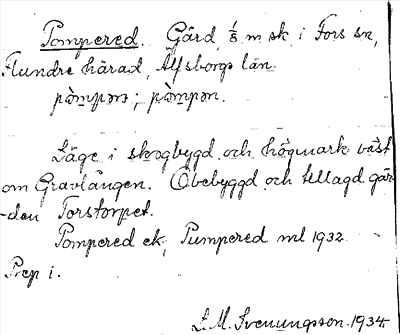 Pompered. Gård, 1/8 m sk. i Fors sn,
Flundre härad, Älfsborgs län.
pòmpǝrǝ; pòmpǝn.
Läge i skogbygd och högmark väst
om Gravlången. Obebyggd och tillagd går-
-den Torstorpet.
Pompered ek, Pumpered ml 1932.
Prep i.
L. M. Svenungsson. 1934.